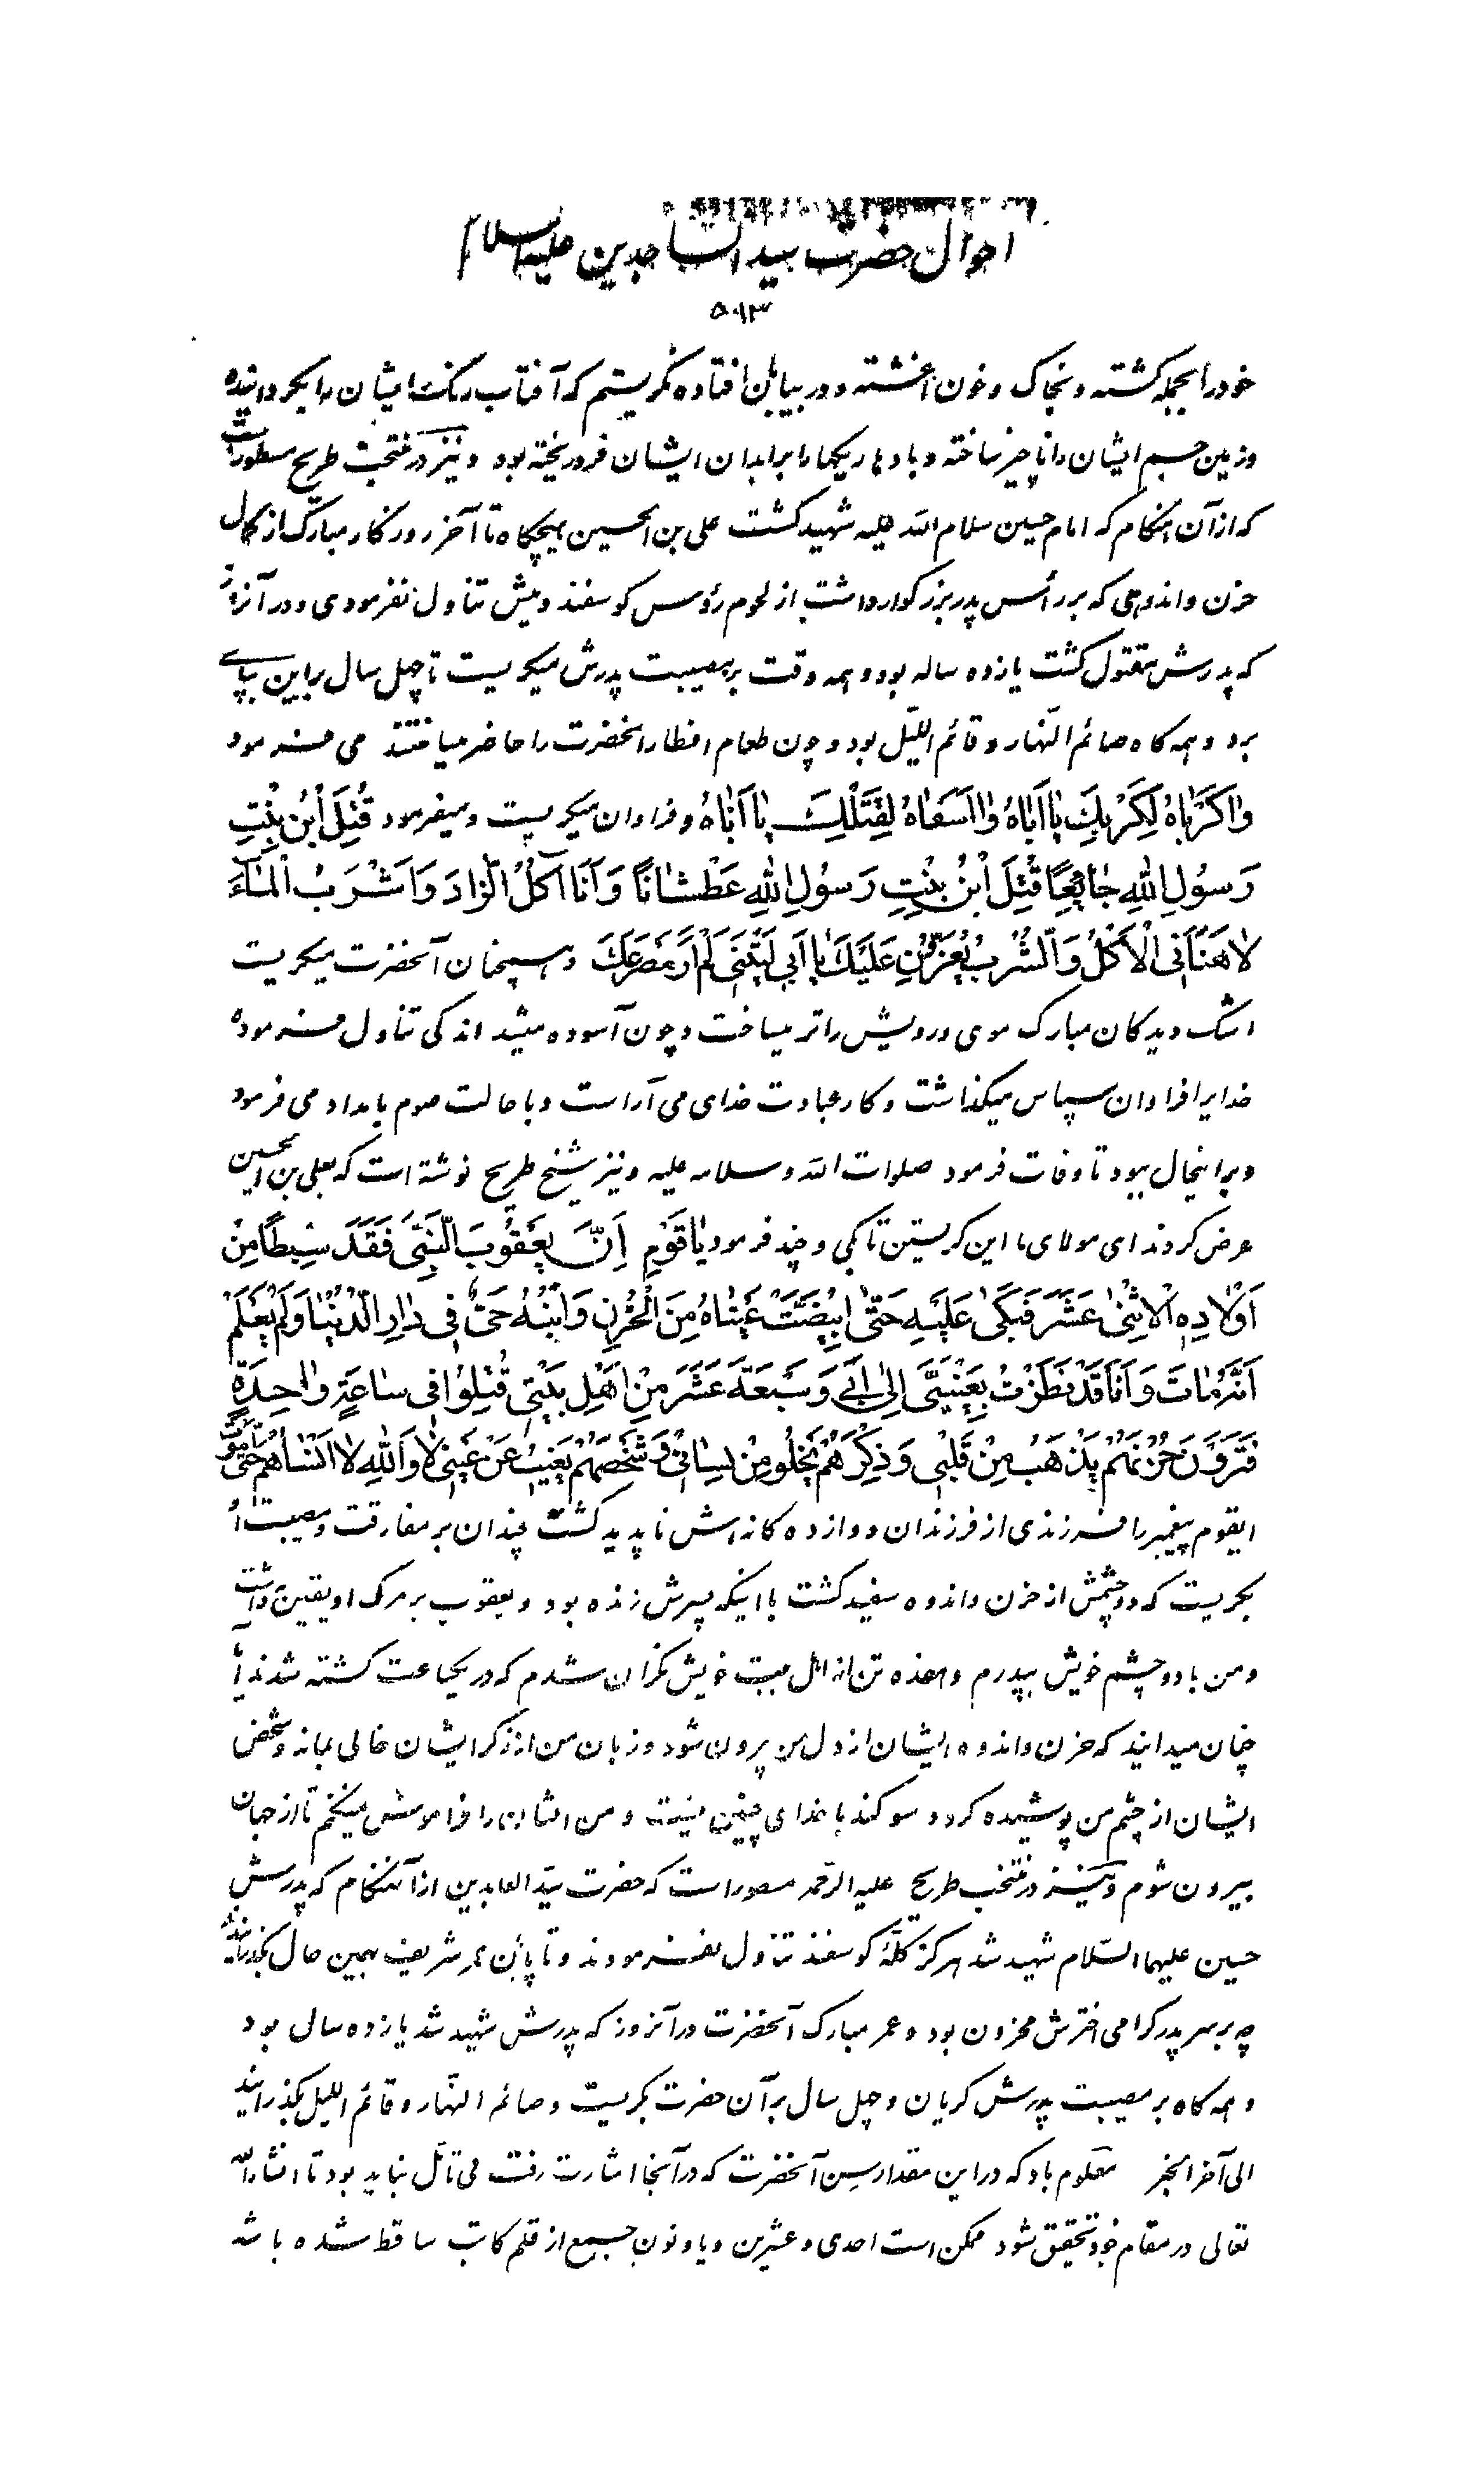 احوال حضرت سید الساجدین علیه السلام
۵۰۱۳
خود را بجمله کشته و بخاک و خون آغشته و در بیابان افتاده نگریستم که آفتاب رنگ ایشان را دیگر گردانیده
و زمین جسم ایشان را ناچیز ساخته و بادها ریگها را بر ابدان ایشان فرو ریخته بود و نیز در منتخب طریح مسطور است
که از آن هنگام که امام حسین سلام الله علیه شهید گشت علی بن الحسین هیچگاه تا آخر روزگار مبارک از کمال
حزن و اندوهی که بر رأس پدر بزرگوار داشت از لحوم رؤس گوسفند و میش تناول نفرمودی و در آنروز
که پدرش مقتول گشت یازده ساله بود و همه وقت بر مصیبت پدرش میگریست تا چهل سال براین بپای
برد و همه گاه صائم النهار و قائم اللیل بود و چون طعام افطار انحضرت را حاضر میساختند می فرمود
وٰاکَرْبٰاهُ لِکَرْبِكَ یٰا اَبٰاهُ وٰا اَسَفٰاهُ لِقَتْلِكَ یٰا اَبٰاهُ و فراوان میگریست و میفرمود قُتِلَ ابْنُ بِنْتِ
رَسُولِ اللهِ جٰائِعًا قُتِلَ ابْنُ بِنْتِ رَسُولِ اللهِ عَطْشٰانًا وَ اَنَا آکُلُ الزّٰادَ وَ اَشْرَبُ الْمٰاءَ
لاٰ هَنَّاَنِی الْاَکْلُ وَ الشُّرْبُ یَعِزُّ عَلَیْكَ یٰا اَبِی لَیْتَنِی لَمْ اَرَ مَصْرَعَكَ و همچنان آنحضرت میگریست
اشک دیدگان مبارک موی و رویش را تر میساخت و چون آسوده میشد اندکی تناول فرموده
خدایرا فراوان سپاس میگذاشت و کار عبادت خدای می آراست و با حالت صوم بامداد می فرمود
و براینحال ببود تا وفات فرمود صلوات الله و سلامه علیه و نیز شیخ طریح نوشته است که بعلی بن الحسین
عرض کردند ای مولای ما این گریستن تا کی و چند فرمود یٰا قَوْمِ اِنَّ یَعْقُوبَ النَّبِیَّ فَقَدَ سِبْطًا مِنْ
اَوْلاٰدِهِ الْاِثْنیٰ عَشَرَ فَبَکیٰ عَلَیْهِ حَتّیٰ ابْیَضَّتْ عَیْنٰاهُ مِنَ الْحُزْنِ وَ ابْنُهُ حَیٌّ فِی دٰارِ الدُّنْیٰا وَ لَمْ یَعْلَمْ
اَنَّهُ مٰاتَ وَ اَنَا قَدْ نَظَرْتُ بِعَیْنِی اِلیٰ اَبِی وَ سَبْعَةَ عَشَرَ مِنْ اَهْلِ بَیْتِی قُتِلُوا فِی سٰاعَةٍ وٰاحِدَةٍ
فَتَرَوْنَ حُزْنَهُمْ یَذْهَبُ مِنْ قَلْبِی وَ ذِکْرَهُمْ یَخْلُو مِنْ لِسٰانِی وَ شَخْصَهُمْ یَغِیبُ عَنْ عَیْنِی لاٰ وَ اللهِ لاٰ اَنْسٰاهُمْ حَتّیٰ اَمُوتَ
ایقوم پیغمبر را فرزندی از فرزندان دوازده گانه اش ناپدید گشت چندان بر مفارقت و مصیبت او
بگریست که دو چشمش از حزن و اندوه سفید گشت با اینکه پسرش زنده بود و یعقوب بر مرک او یقین نداشت
و من با دو چشم خویش بپدرم و هفده تن از اهل بیت خویش نگران شدم که در یکساعت کشته شدند آیا
چنان میدانید که حزن و اندوه ایشان از دل من برون شود و زبان من از ذکر ایشان خالی بماند و شخص
ایشان از چشم من پوشیده گردد سوگند با خدای چنین نیست و من ایشان را فراموش نمیکنم تا از جهان
بیرون شوم و نیز در منتخب طریح علیه الرحمه مسطور است که حضرت سید العابدین از آنهنگام که پدرش
حسین علیهما السلام شهید شد هرگز کلهٔ گوسفند تناول نفرمودند و تا پایان عمر شریف بهمین حال بگذرانید
چه بر سر پدر گرامی اخترش محزون بود و عمر مبارک آنحضرت در آنروز که پدرش شهید شد یازده سال بود
و همه گاه بر مصیبت پدرش گریان و چهل سال بر آن حضرت بگریست و صائم النهار و قائم اللیل بگذرانید
الی آخر الخبر معلوم باد که در این مقدار سن آنحضرت که در آنجا اشارت رفت بی تأمل نباید بود تا انشاء الله
تعالی در مقام خود تحقیق شود ممکن است احدی و عشرین و یا و نون جمع از قلم کاتب ساقط شده باشد